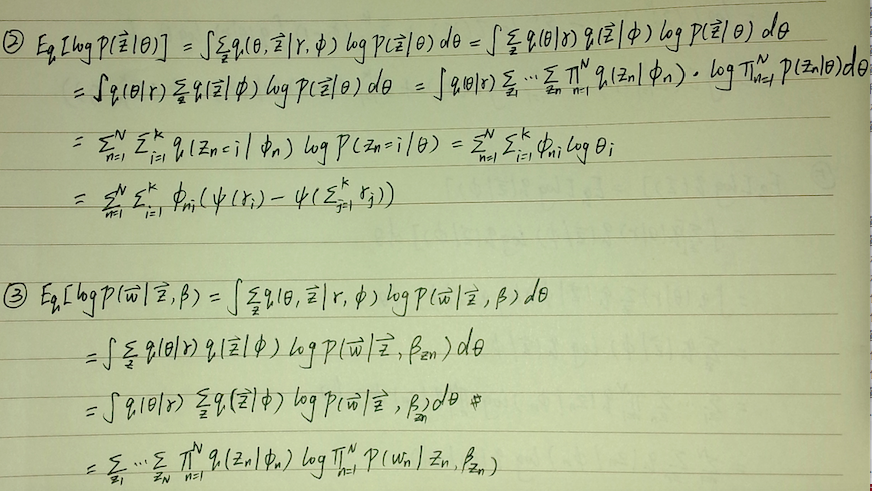 ② Eq[log P(z⃗|θ)] = ∫Σ_z q(θ, z⃗|r, φ) log P(z⃗|θ) dθ = ∫Σ_z q(θ|r) q(z⃗|φ) log P(z⃗|θ) dθ
= ∫q(θ|r) Σ_z q(z⃗|φ) log P(z⃗|θ) dθ = ∫q(θ|r) Σ_{z₁} ⋯ Σ_{zn} Π_{n=1}^N q(zn|φn) · log Π_{n=1}^N P(zn|θ) dθ
= Σ_{n=1}^N Σ_{i=1}^k q(zn=i|φn) log P(zn=i|θ) = Σ_{n=1}^N Σ_{i=1}^k φni log θi
= Σ_{n=1}^N Σ_{i=1}^k φni (ψ(ri) - ψ(Σ_{j=1}^k rj))
③ Eq[log P(w⃗|z⃗, β) = ∫Σ_z q(θ, z⃗|r, φ) log P(w⃗|z⃗, β) dθ
= ∫Σ_z q(θ|r) q(z⃗|φ) log P(w⃗|z⃗, β_{zn}) dθ
= ∫q(θ|r) Σ_z q(z⃗|φ) log P(w⃗|z⃗, β_{zn}) dθ
= Σ_{z₁} ⋯ Σ_{zN} Π_{n=1}^N q(zn|φn) log Π_{n=1}^N P(wn|zn, β_{zn})